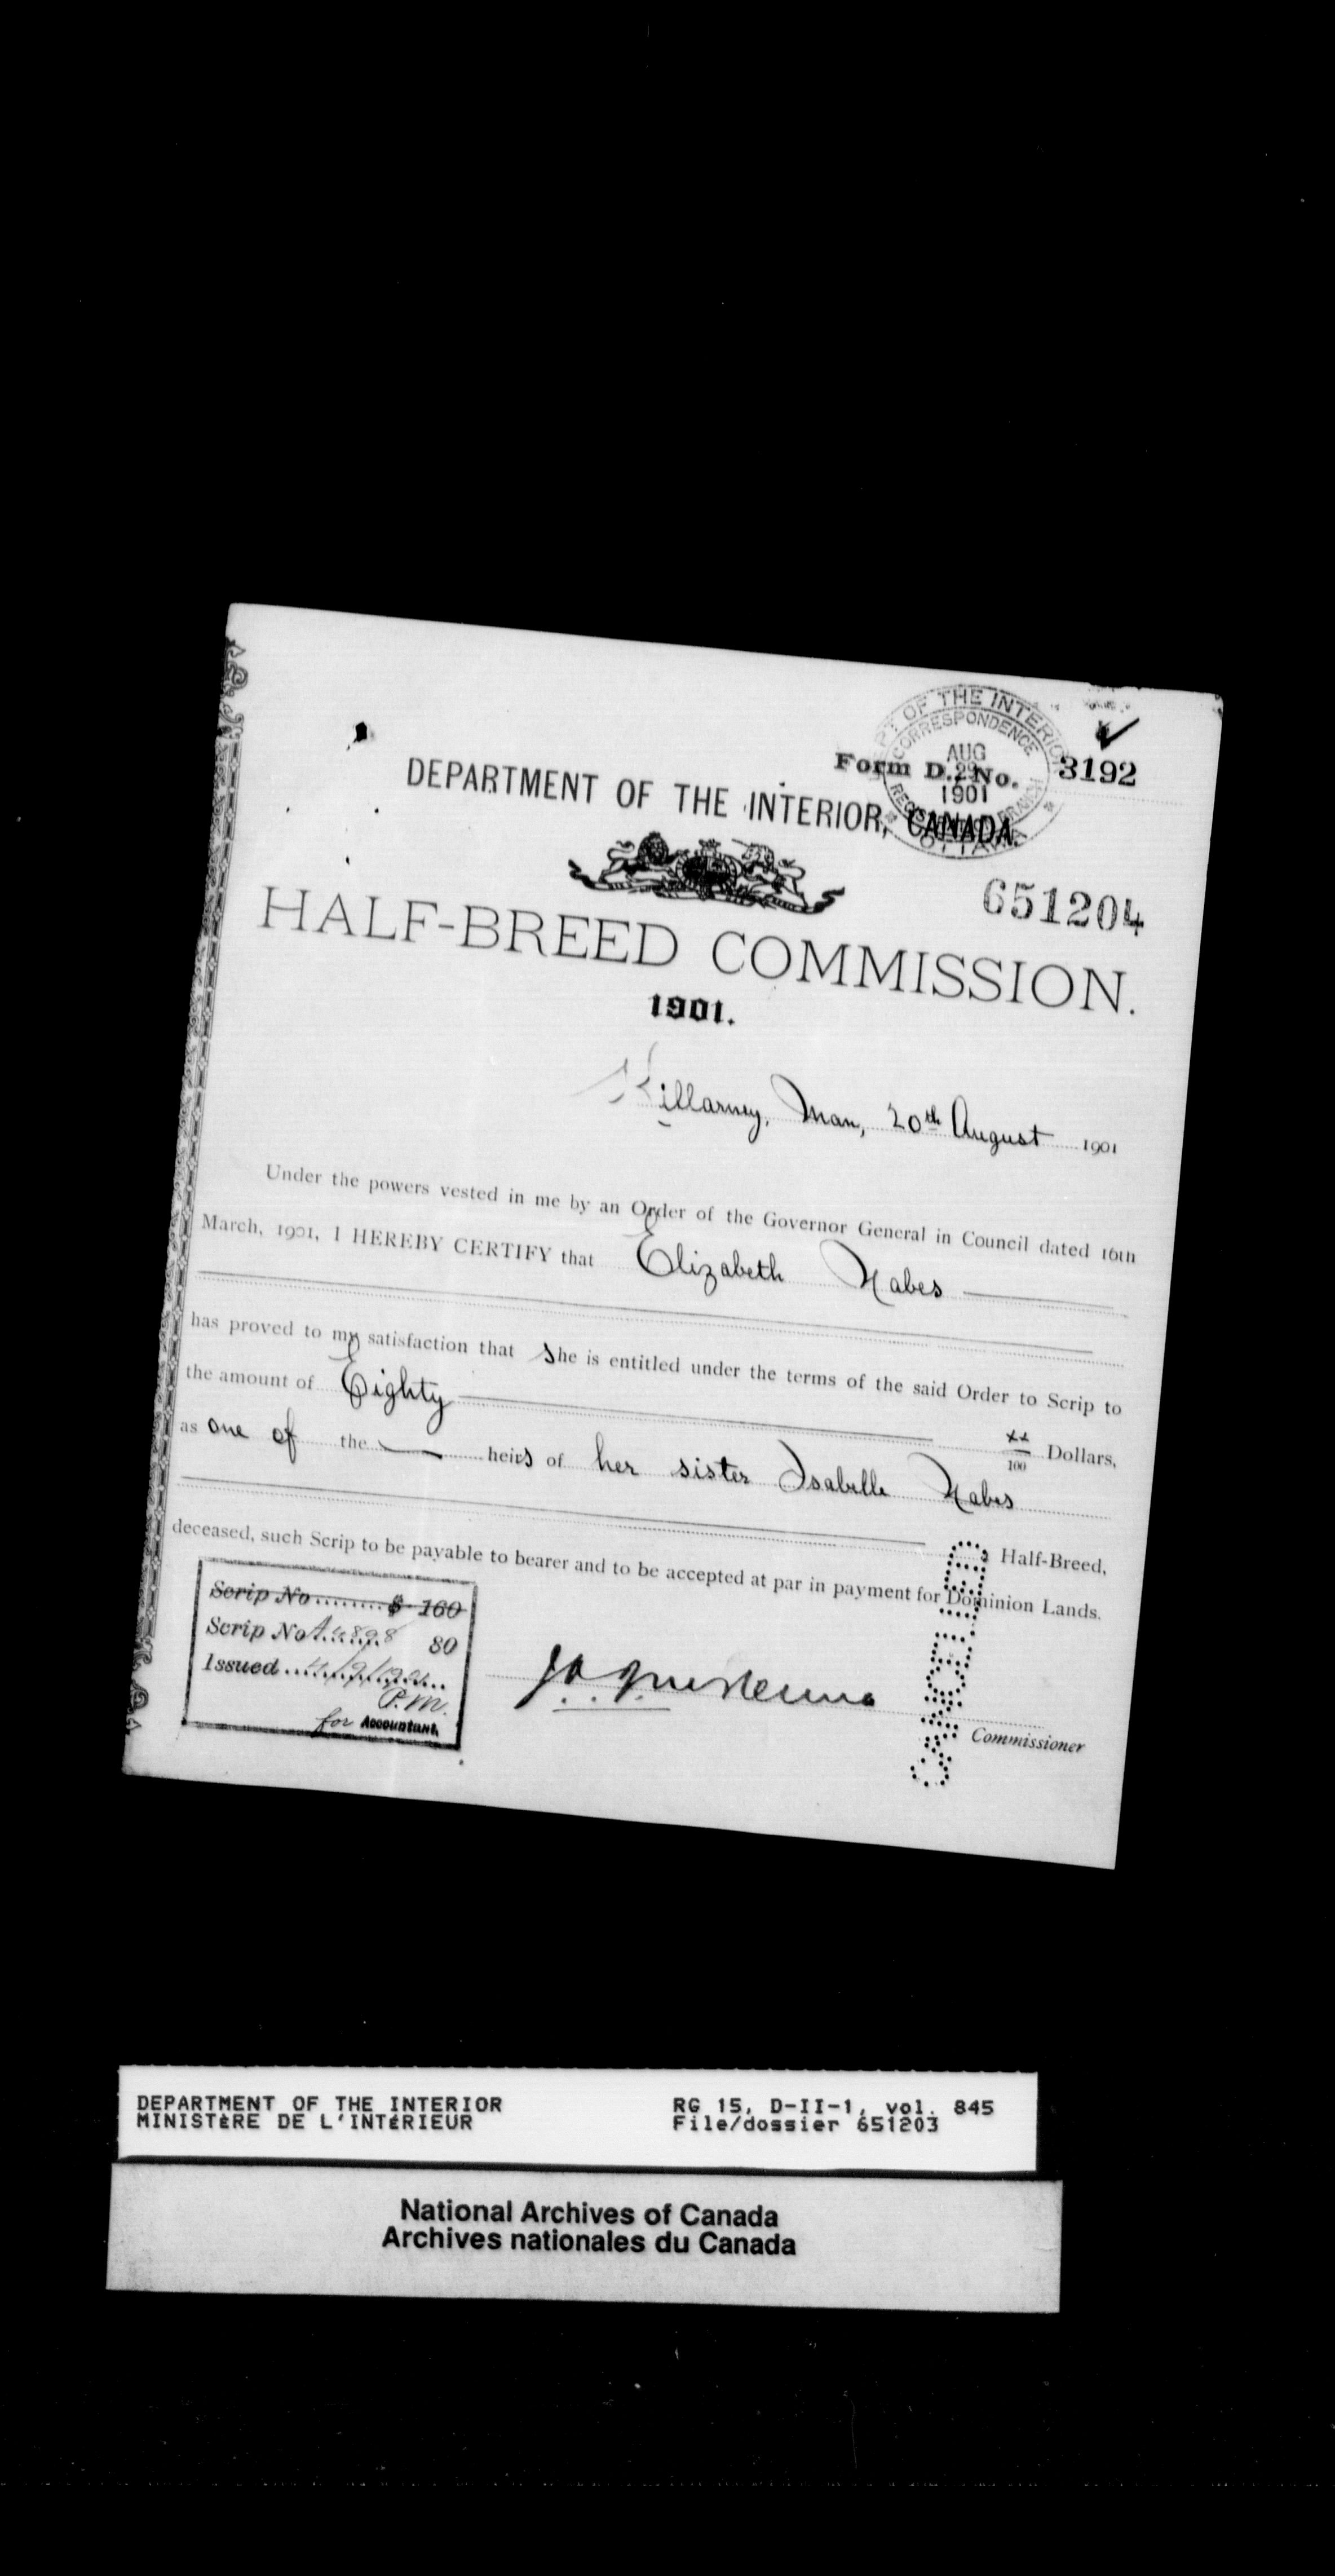 DEPT OF THE INTERIOR
CORRESPONDENCE
AUG
29
1901
REGISTRATION BRANCH
OTTAWA
Form D. No. 3192
DEPARTMENT OF THE INTERIOR, CANADA.
651204
HALF-BREED COMMISSION.
1901.
Killarney, Man, 20th August 1901
Under the powers vested in me by an Order of the Governor General in Council dated 16th
March, 1901, I HEREBY CERTIFY that Elizabeth Nabes
has proved to my satisfaction that she is entitled under the terms of the said Order to Scrip to
the amount of Eighty xx/100 Dollars,
as one of the heirs of her sister Isabelle Nabes
Half-Breed,
deceased, such Scrip to be payable to bearer and to be accepted at par in payment for Dominion Lands.
Scrip No........$ 160
Scrip No A4898 80
Issued 4/9/1901
P.M.
for Accountant.
Commissioner
CANCELLED
DEPARTMENT OF THE INTERIOR RG 15, D-II-1, vol. 845
MINISTÈRE DE L'INTÉRIEUR File/dossier 651203
National Archives of Canada
Archives nationales du Canada